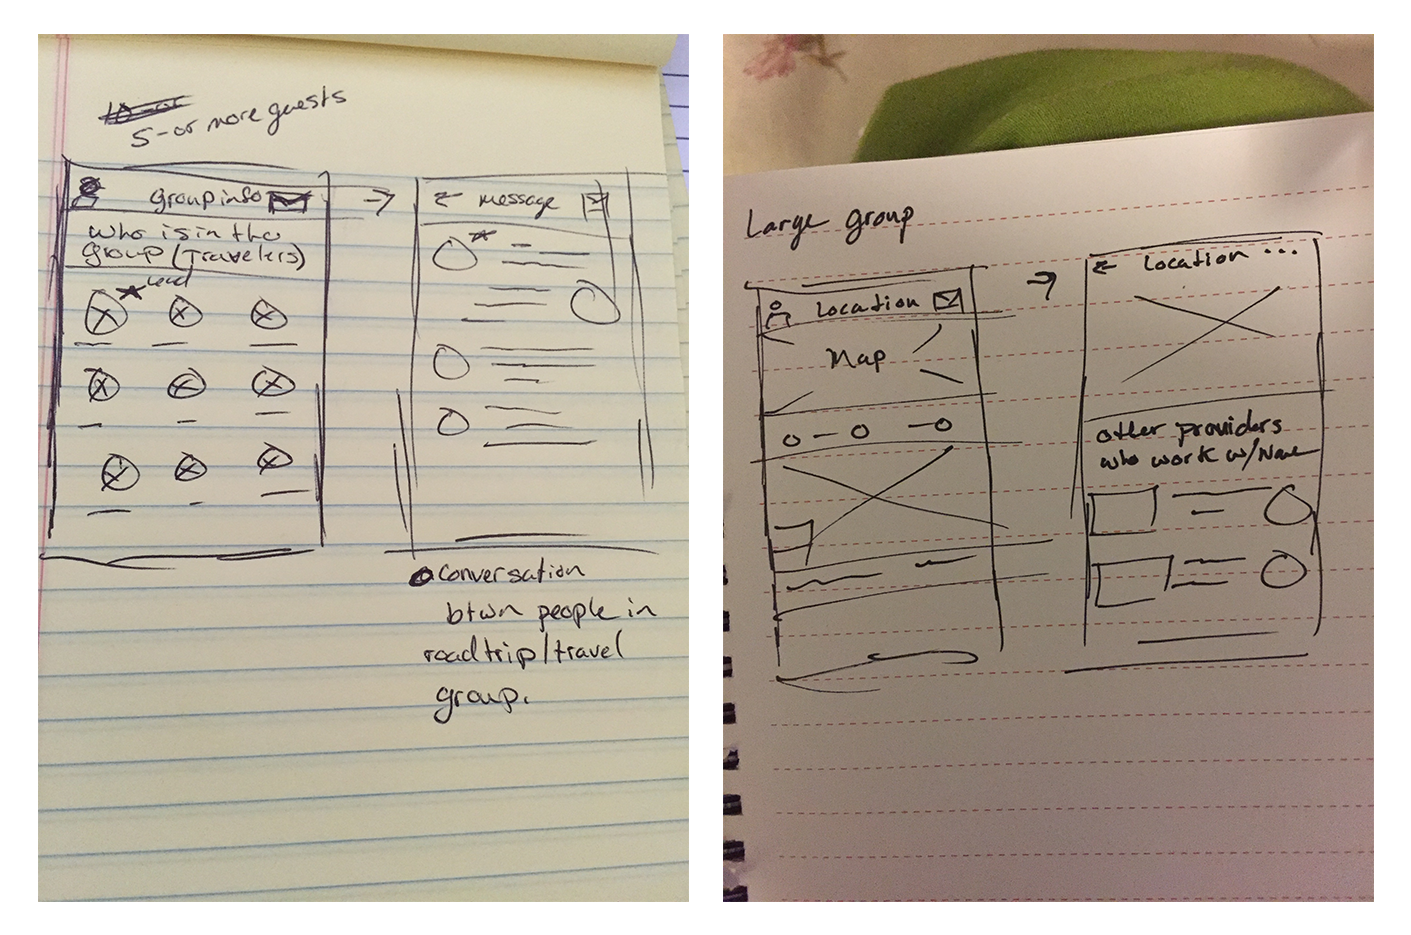 5-or more guests
group info
who is in the
group (travelers)
lead
← message
conversation
btwn people in
road trip/travel
group.
Large group
Location
Map
← Location ...
other providers
who work w/Name